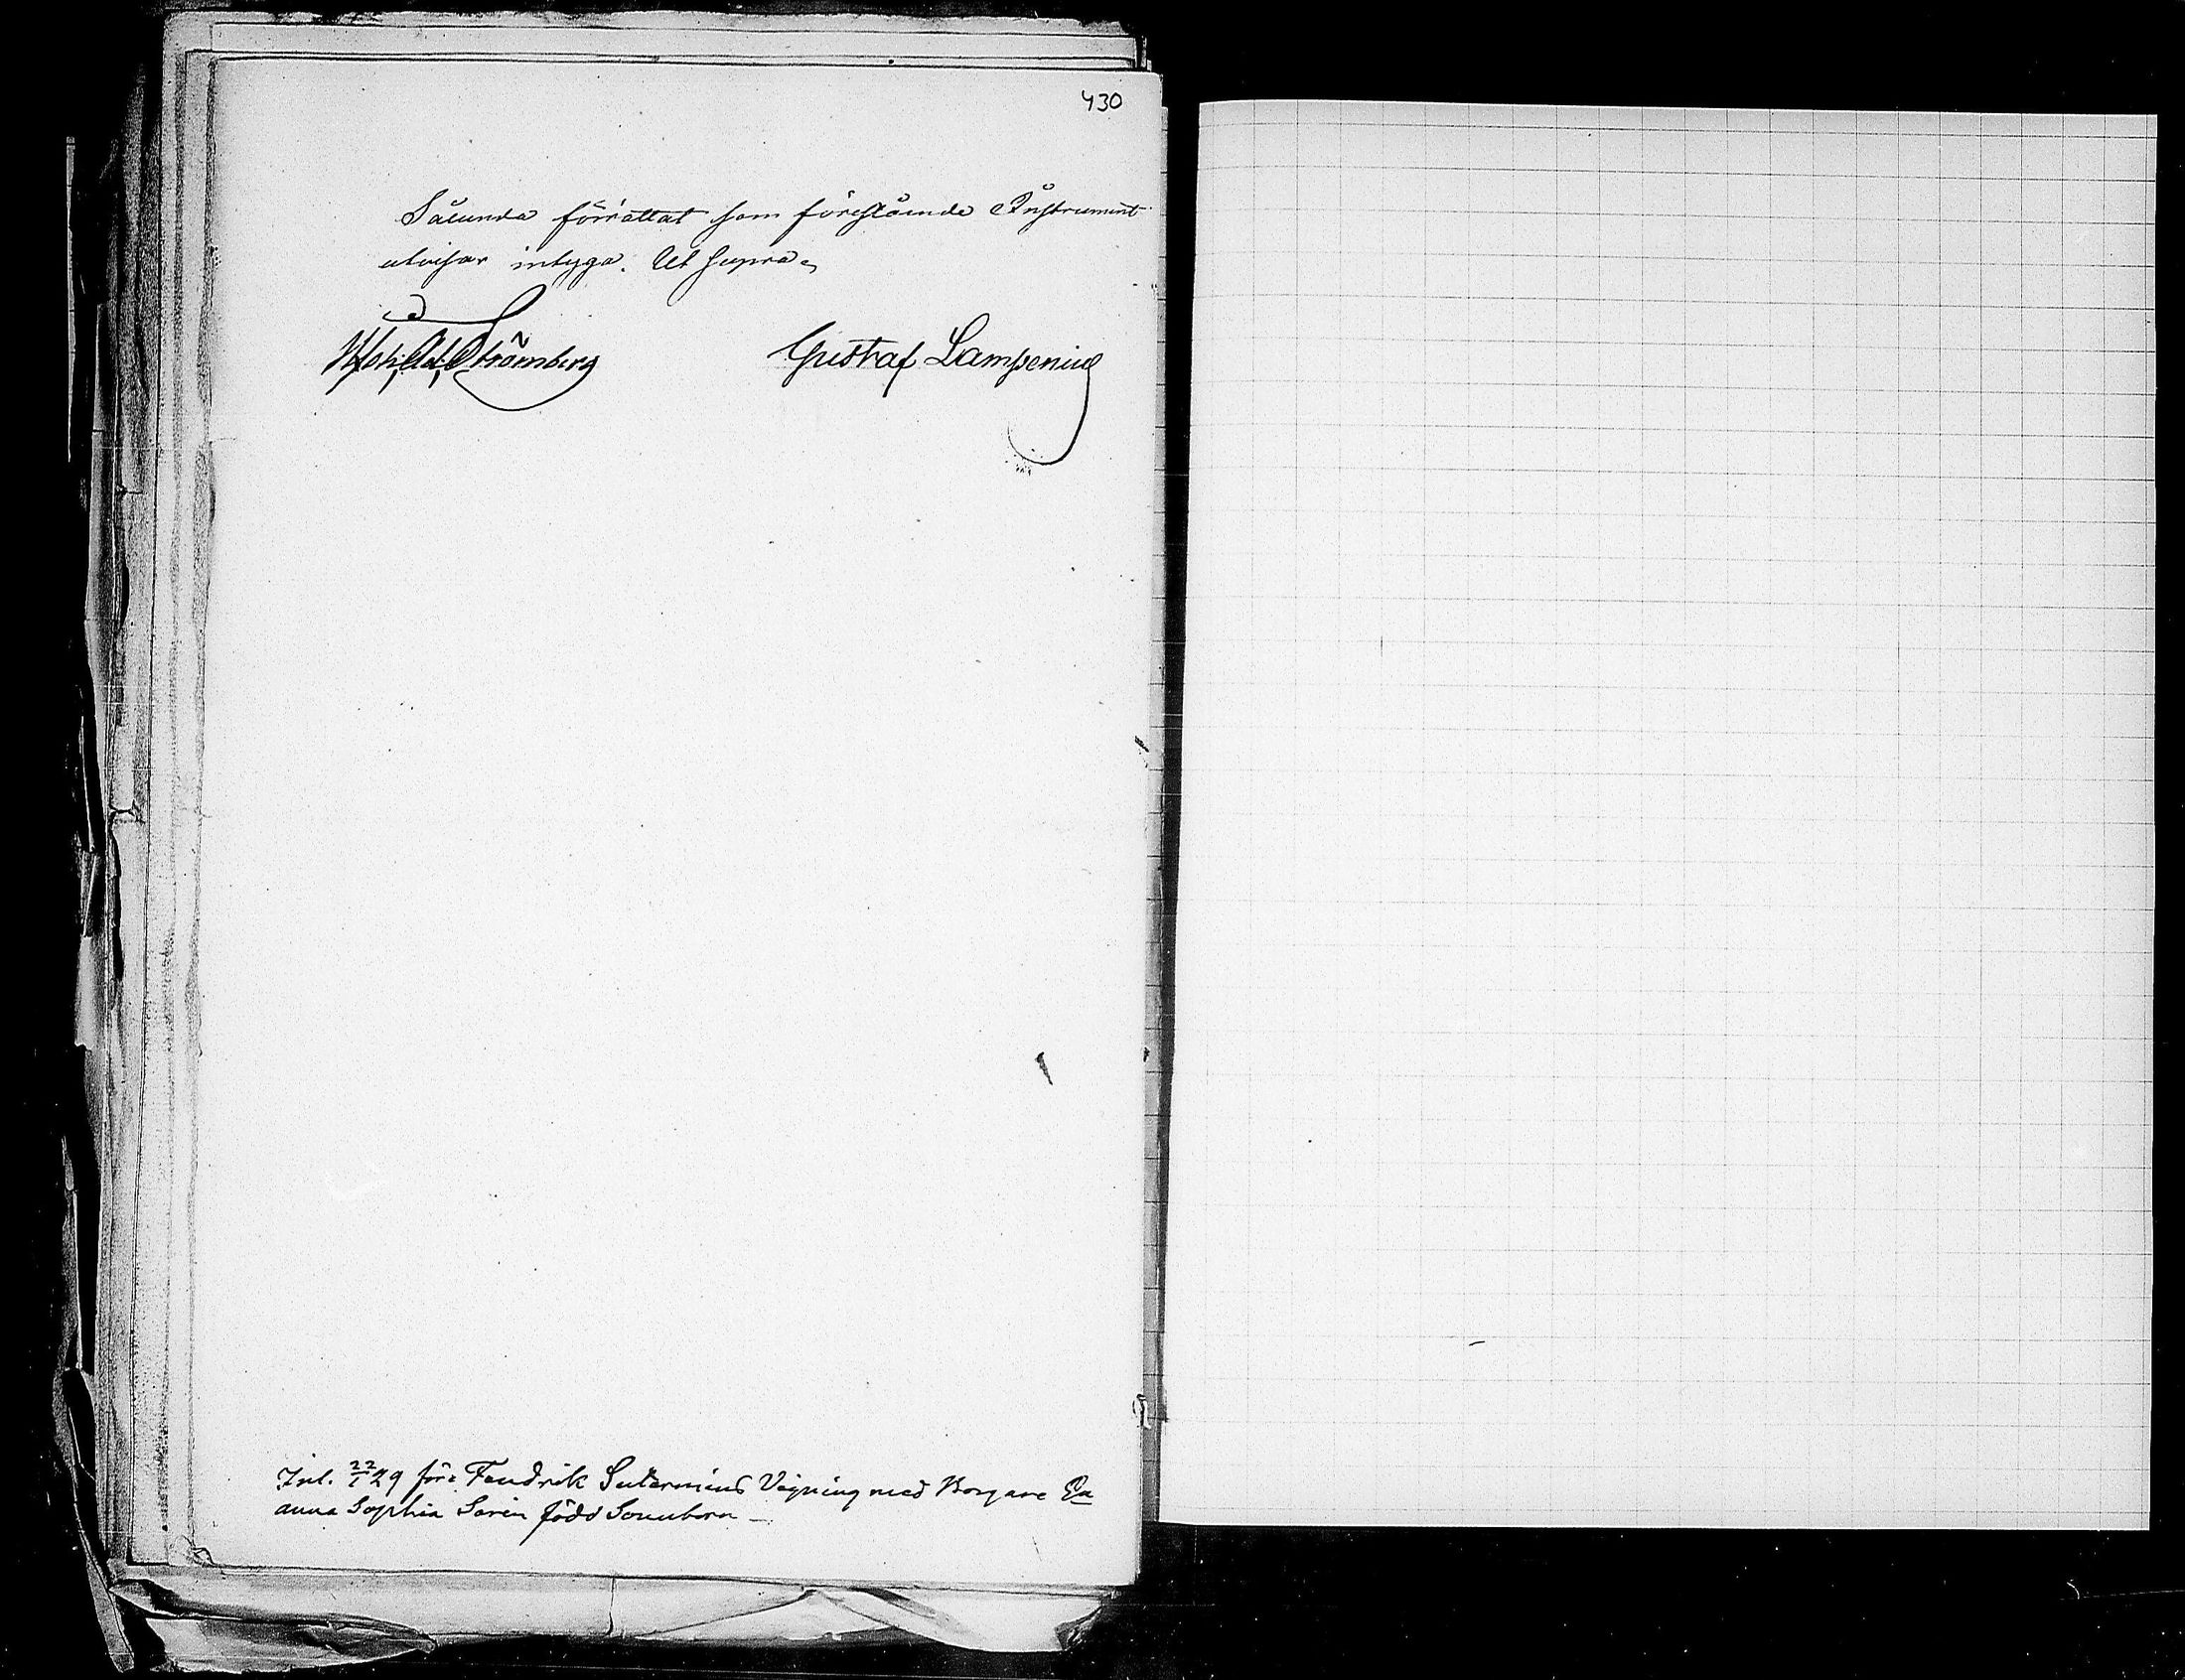 430
Sålunda förrattat som förestående Instrument
utvisar intyga. Ut supra.
Strömberg Gustaf Lampenius
Inl. 22/1 29 för Fendrik Suterminus Vigning med Borgare En
anna Sophia Sarin född Sounborn